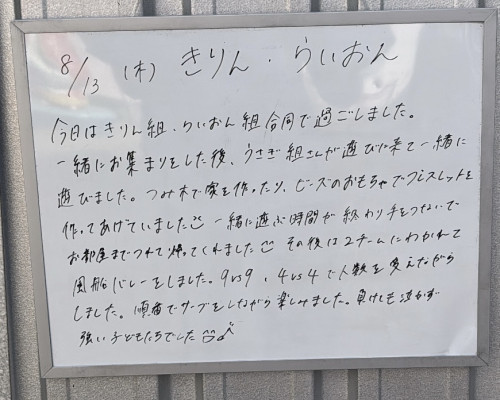 8/13 (木) きりん・らいおん
今日はきりん組、らいおん組合同で過ごしました。
一緒にお集まりをした後、うさぎ組さんが遊びに来て一緒に
遊びました。つみ木で家を作ったり、ビーズのおもちゃでブレスレットを
作ってあげていました 一緒に遊ぶ時間が終わり手をつないで
お部屋までつれて帰ってくれました その後は2チームにわかれて
風船バレーをしました。9vs9、4vs4で人数を変えながら
しました。順番でサーブをしながら楽しみました。負けても泣かず
強い子どもたちでした